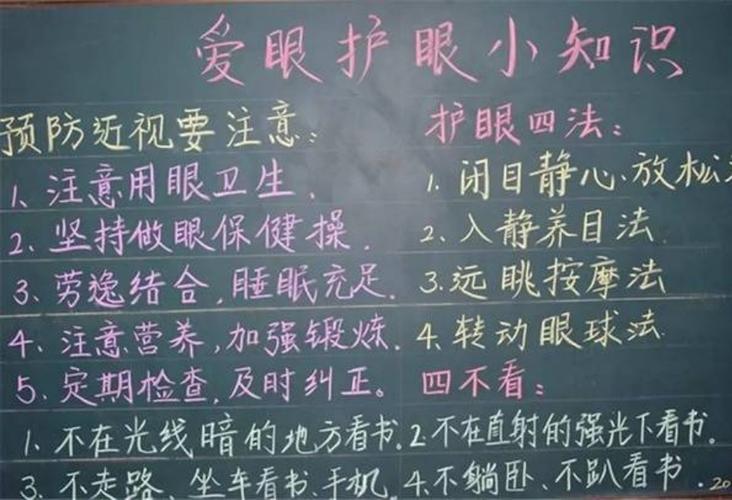 爱眼护眼小知识
预防近视要注意:
1、注意用眼卫生.
2、坚持做眼保健操.
3、劳逸结合,睡眠充足.
4、注意营养,加强锻炼.
5、定期检查,及时纠正。
护眼四法:
1、闭目静心、放松
2、入静养目法
3、远眺按摩法
4、转动眼球法
四不看:
1、不在光线暗的地方看书. 2、不在直射的强光下看书。
3、不走路、坐车看书、手机. 4、不躺卧、不趴看书. 20